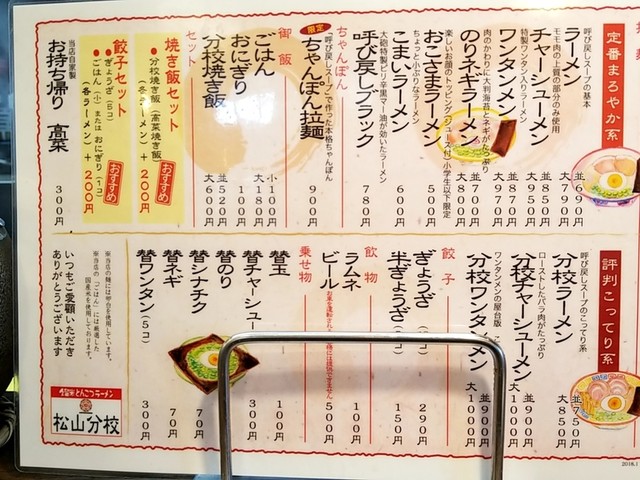 定番まろやか系
呼び戻しスープの基本
ラーメン
並690円
大790円
モモ肉の上質の部分のみ使用
チャーシューメン
並850円
大950円
特製ワンタン入りラーメン
ワンタンメン
並870円
大970円
肉のかわりに大判海苔とネギがたっぷり
のりネギラーメン
並780円
大880円
楽しいお顔のトッピング(ジュース付)小学生以下限定
おこさまラーメン
500円
ちょっと小ぶりなラーメン
こまいラーメン
600円
大砲特製ピリ辛黒マー油が効いたラーメン
呼び戻しブラック
780円
ちゃんぽん
「呼び戻しスープ」で作った本格ちゃんぽん
限定
ちゃんぽん拉麺
900円
御飯
ごはん
小100円
大180円
おにぎり
100円
分校焼き飯
並520円
大600円
セット
焼き飯セット
・分校焼き飯(高菜焼き飯)
(各ラーメン)+200円
おすすめ
餃子セット
・ぎょうざ(5コ)
・ごはん(小)またはおにぎり(1コ)
(各ラーメン)+200円
おすすめ
当店自家製
お持ち帰り 高菜
300円
評判こってり系
呼び戻しスープのこってり系
分校ラーメン
並750円
大850円
ローストしたバラ肉がたっぷり
分校チャーシューメン
並900円
大1000円
ワンタンメンの屋台版
分校ワンタンメン
並900円
大1000円
餃子
ぎょうざ
290円
半ぎょうざ
150円
飲物
ラムネ
100円
ビール
500円
乗せ物
替玉
100円
替チャーシュー
300円
替のり
替シナチク
70円
替ネギ
70円
替ワンタン(5コ)
300円
いつもご愛顧いただき
ありがとうございます
久留米とんこつラーメン
松山分校
2018.1